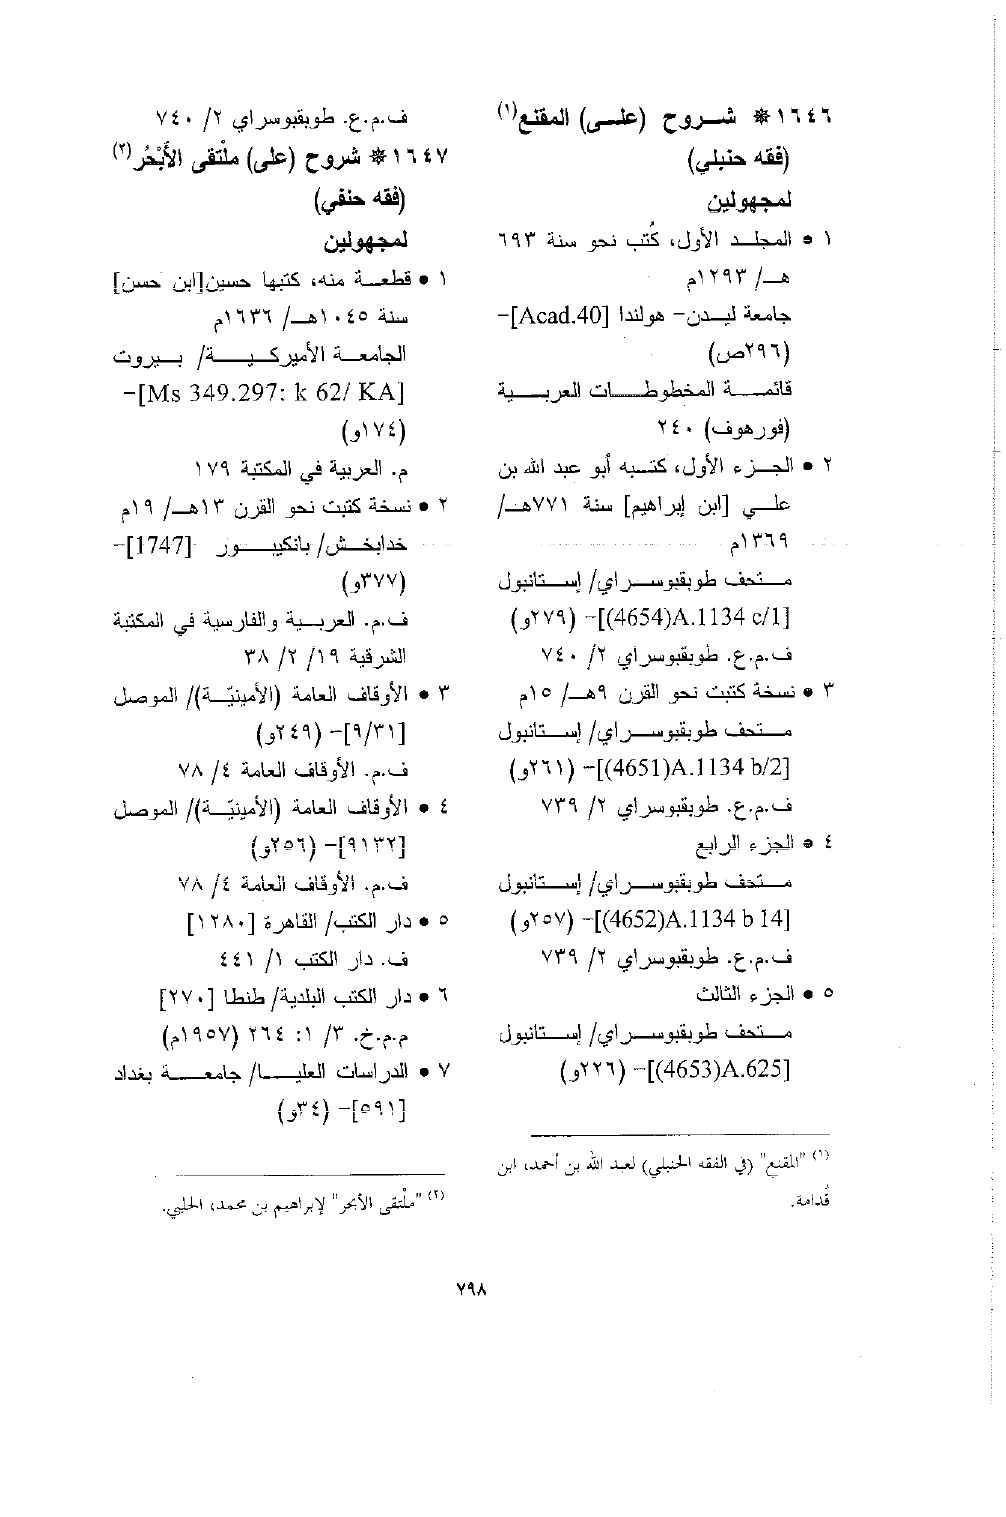 ١٦٤٦ * شـــروح (علـــى) المقنع(١)
(فقه حنبلي)
لمجهولين
١ • المجلـــد الأول، كُتب نحو سنة ٦٩٣
هـــ/ ١٢٩٣م
جامعة ليـــدن- هولندا [Acad.40]-
(٢٩٦ص)
قائمـــة المخطوطـــات العربـــية
(فورهوف) ٢٤٠
٢ • الجـــزء الأول، كتـــبه أبو عبد الله بن
علـــي [ابن إبراهيم] سنة ٧٧١هـــ/
١٣٦٩م
مـــتحف طوبقبوســـراي/ إســـتانبول
[4654)A.1134 c/1)]- (٢٧٩و)
ف.م.ع. طوبقبوسراي ٢/ ٧٤٠
٣ • نسخة كتبت نحو القرن ٩هـــ/ ١٥م
مـــتحف طوبقبوســـراي/ إســـتانبول
[4651)A.1134 b/2)]- (٢٦١و)
ف.م.ع. طوبقبوسراي ٢/ ٧٣٩
٤ • الجزء الرابع
مـــتحف طوبقبوســـراي/ إســـتانبول
[4652)A.1134 b 14)]- (٢٥٧و)
ف.م.ع. طوبقبوسراي ٢/ ٧٣٩
٥ • الجزء الثالث
مـــتحف طوبقبوســـراي/ إســـتانبول
[4653)A.625)]- (٢٢٦و)
(١) "المقنع" (في الفقه الحنبلي) لعبد الله بن أحمد، ابن
قُدامة.
ف.م.ع. طوبقبوسراي ٢/ ٧٤٠
١٦٤٧ * شروح (على) ملْتقى الأَبْحُر(٢)
(فقه حنفي)
لمجهولين
١ • قطعـــة منه، كتبها حسين[ابن حسن]
سنة ١٠٤٥هـــ/ ١٦٣٦م
الجامعـــة الأميركـــيـــة/ بـــيروت
[Ms 349.297: k 62/ KA]-
(١٧٤و)
م. العربية في المكتبة ١٧٩
٢ • نسخة كتبت نحو القرن ١٣هـــ/ ١٩م
خدابخـــش/ بانكيبـــور [1747]-
(٣٧٧و)
ف.م. العربـــية والفارسية في المكتبة
الشرقية ١٩/ ٢/ ٣٨
٣ • الأوقاف العامة (الأمينيّـــة)/ الموصل
[٩/٣١]- (٢٤٩و)
ف.م. الأوقاف العامة ٤/ ٧٨
٤ • الأوقاف العامة (الأمينيّـــة)/ الموصل
[٩١٣٢]- (٢٥٦و)
ف.م. الأوقاف العامة ٤/ ٧٨
٥ • دار الكتب/ القاهرة [١٢٨٠]
ف. دار الكتب ١/ ٤٤١
٦ • دار الكتب البلدية/ طنطا [٢٧٠]
م.م.خ. ٣/ ١: ٢٦٤ (١٩٥٧م)
٧ • الدراسات العليـــا/ جامعـــة بغداد
[٥٩١]- (٣٤و)
(٢) "ملْتقى الأبحر" لإبراهيم بن محمد، الحلبي.
٧٩٨